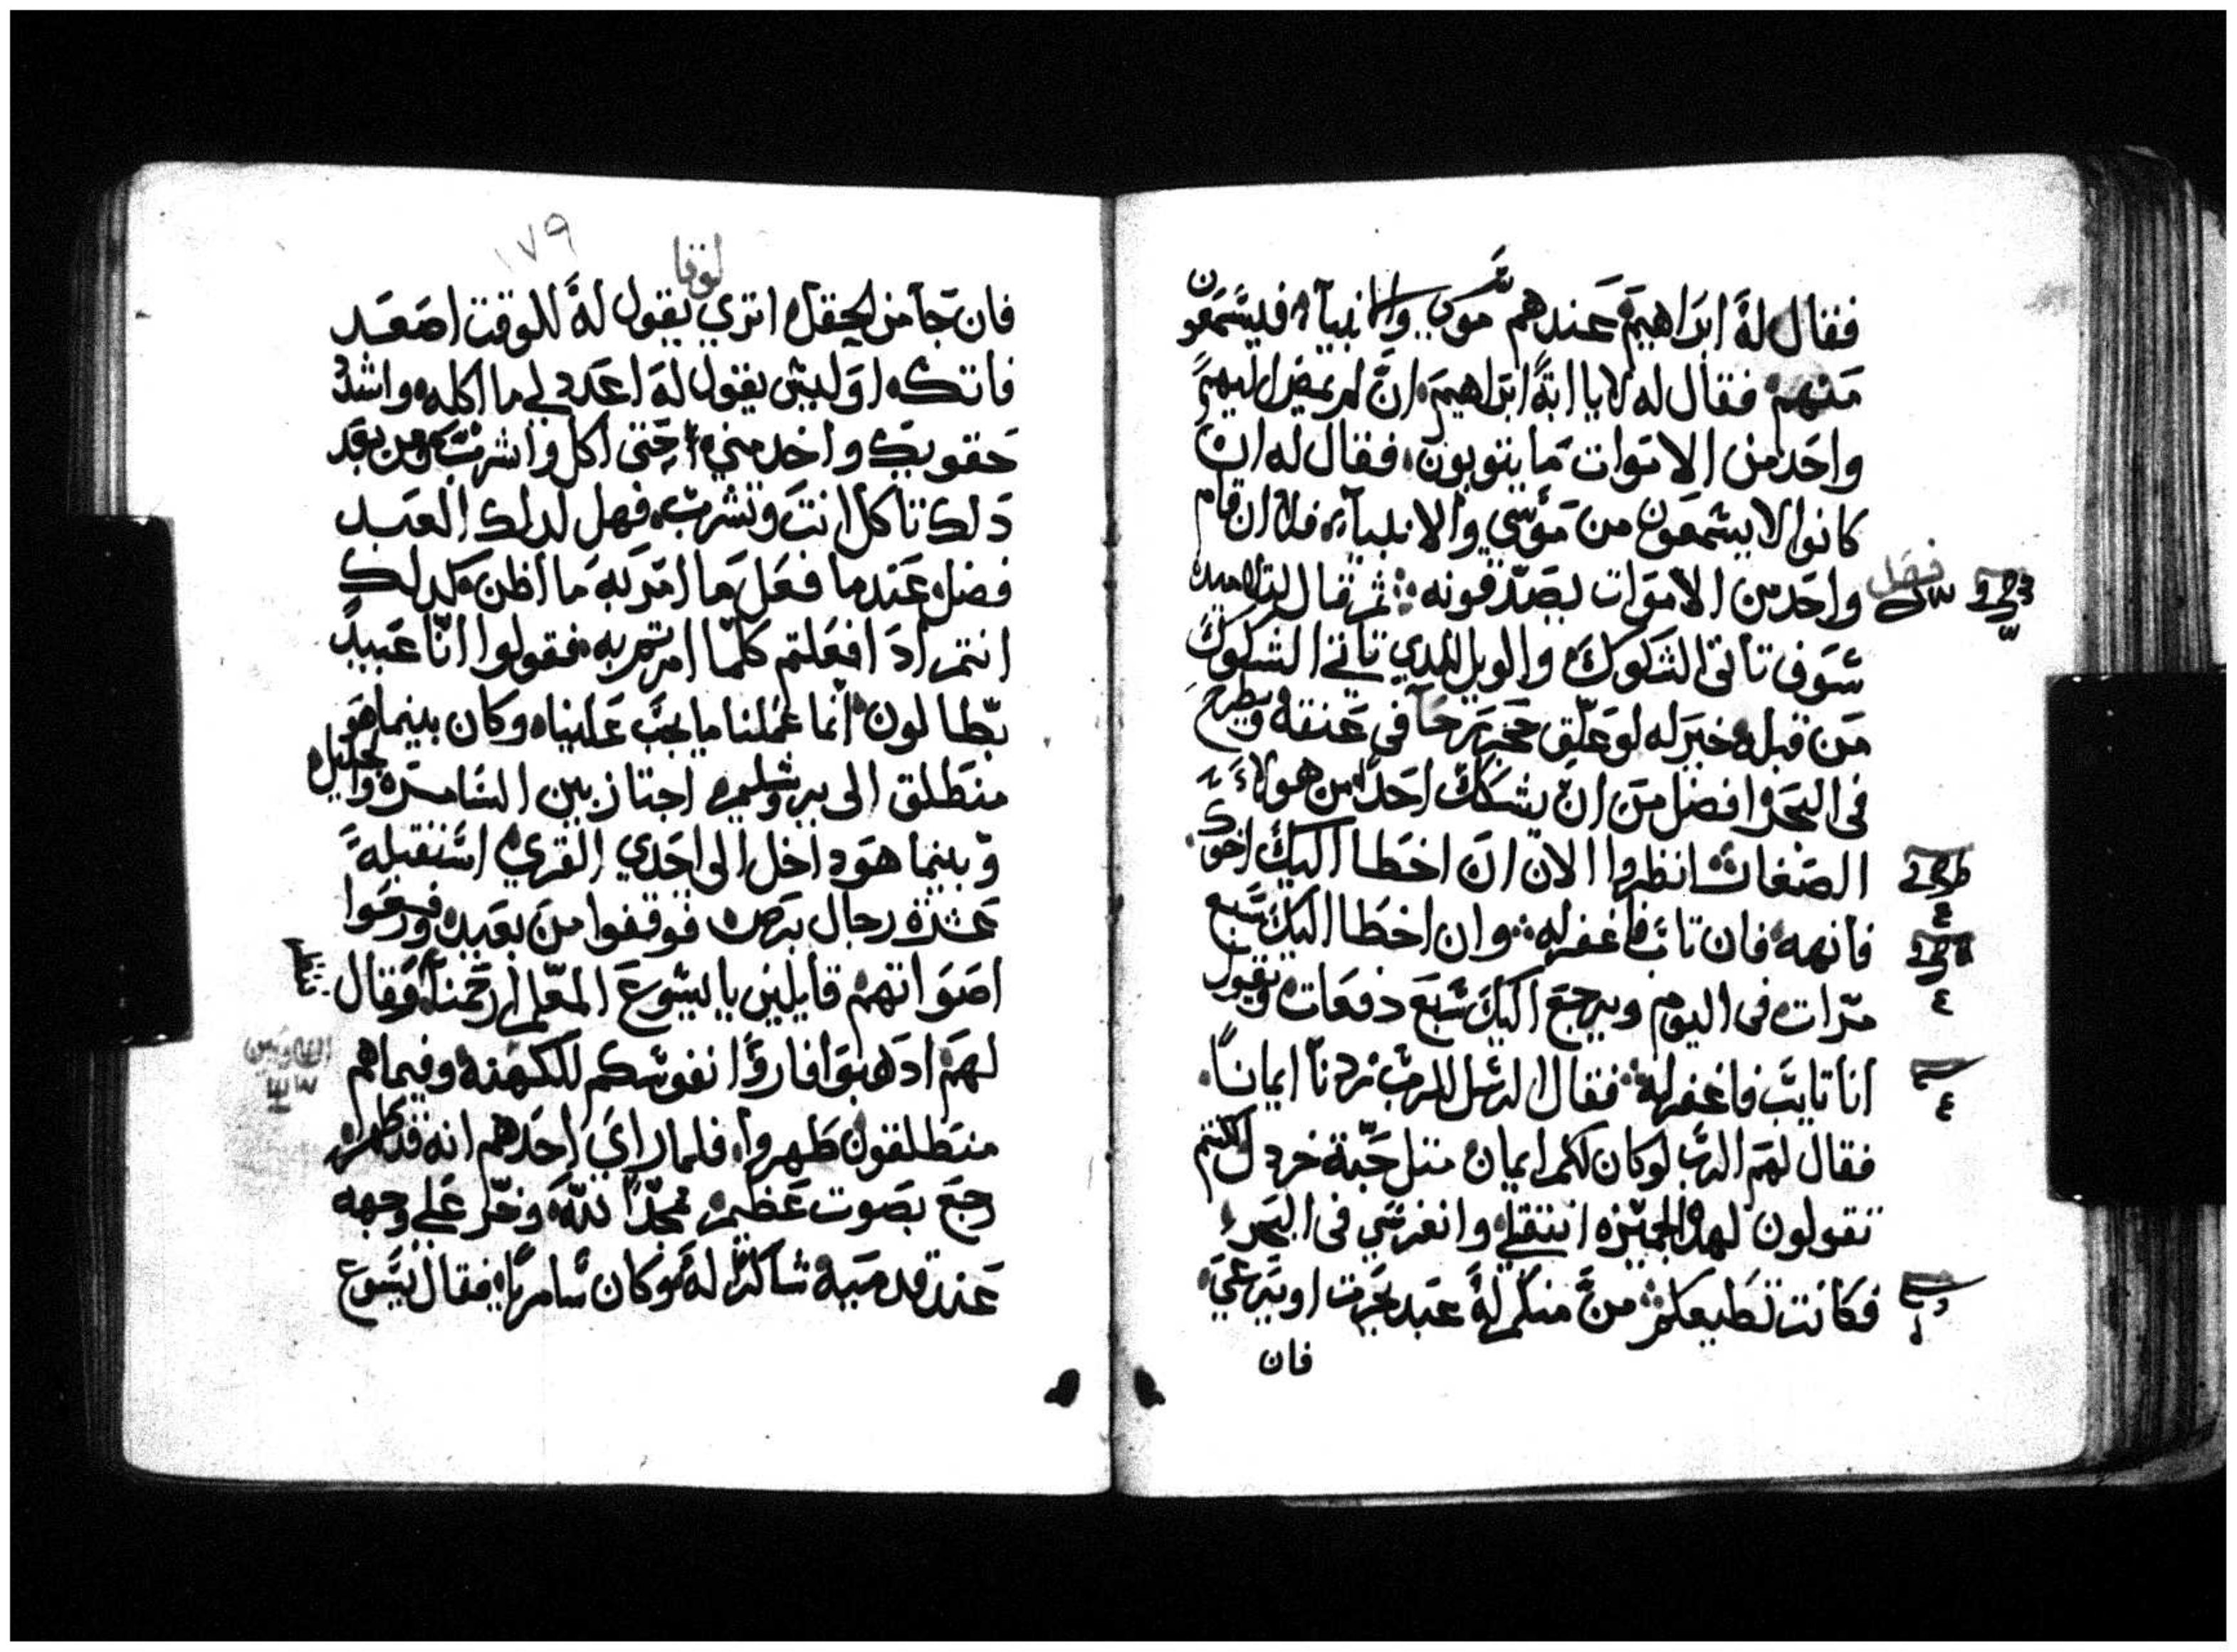 فقال له ابراهيم عندهم موسى والانبياء فليسمعون
منهم فقال له لا يا ابة ابراهيم ان لم يمضى اليهم
واحد من الاموات ما يتوبون فقال له ان
كانوا لا يسمعون من موسي والانبياء فلا ان قام
واحد من الاموات يصدقونه ثم قال لتلاميده
فصل
سوف تاتى الشكوك والويل للدي تاتي الشكوك
من قبله خير له لو علق حجر رحا في عنقه ويطرح
فى البحر افضل من ان يشكك احدا من هولاء
الصغار انظروا الان ان اخطا اليك اخوك
فانهه فان تاب فاغفر له وان اخطا اليك سبع
مرات فى اليوم ويرجع اليك سبع دفعات ويقول
انا تايب فاغفر له فقال الرسل للرب زدنا ايمانا
فقال لهم الرب لو كان لكم ايمان متل حبة خردل لكنتم
تقولون لهده الجميزه انتقلي وانغرسي فى البحر
فكانت تطيعكم من منكم له عبد يحرت او يرعي
فان
لوقا
١٧٩
فان جا من الحقل اترى يقول له للوقت اصعد
فاتكه اوليس يقول له اعدد لي ما اكله واشدد
حقويك واخدمني حتى اكل واشرب ومن بعد
دلك تاكل انت وتشرب فهل لدلك العبد
فضل عندما فعل ما امر به ما اظن كدلك
انتم ادا فعلتم كلما امرتم به فقولوا انا عبيد
بطالون انما عملنا ما يجب علينا وكان بينما هو
منطلق الى يروشليم اجتاز بين السامره والجليل
وبينما هو داخل الى احدي القرى استقبله
عشرة رجال برص فوقفوا من بعيد ورفعوا
اصواتهم قايلين يا يسوع المعلم ارحمنا فقال
لهم ادهبوا فاروا نفوسكم للكهنه وفيما هم
منطلقون طهروا فلما راي احدهم انه قد طهر
رجع بصوت عظيم يمجد الله وخر علي وجهه
عند قدميه شاكرا له وكان سامريا فقال يسوع